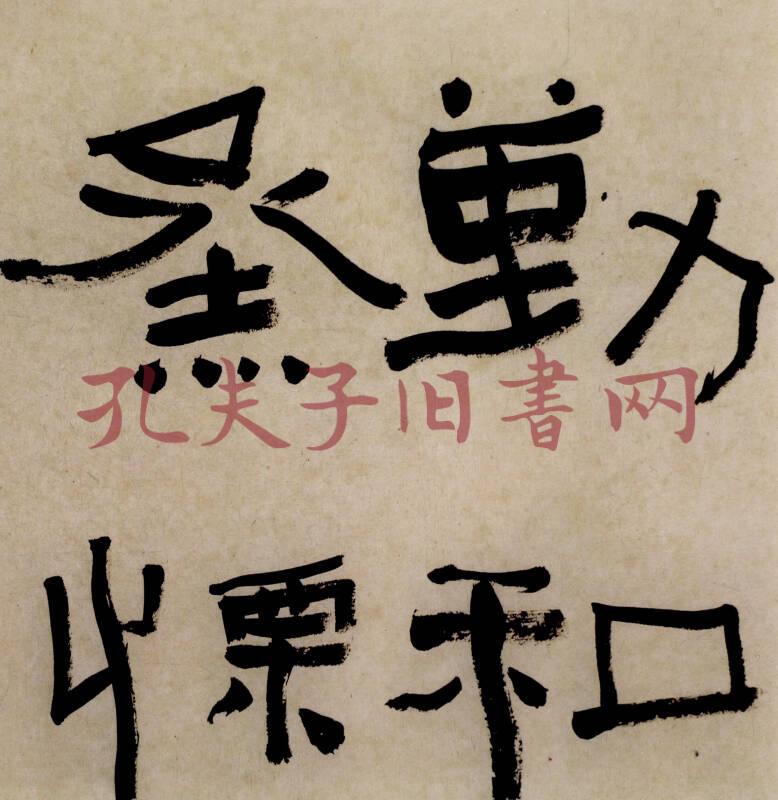 勤和
烝慄
孔夫子旧書网